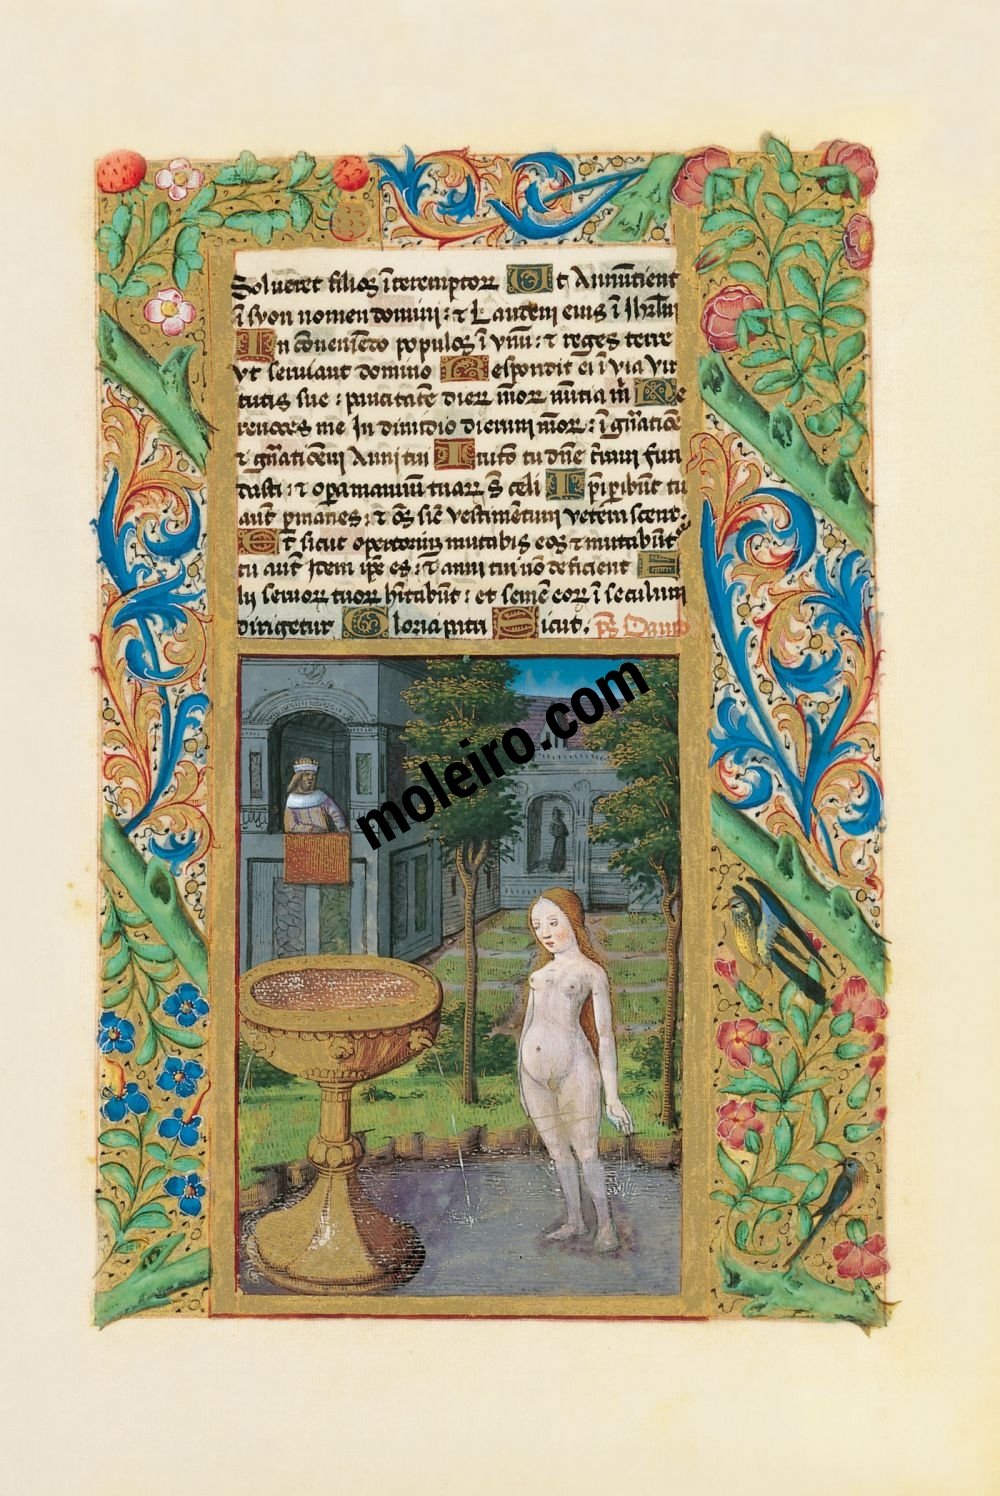 Solveret filios īteremptoꝝ Ut Annūtient
ī syon nomen domini: ⁊ Laudem eius ī Jhrlm̄
In cōveniēdo populos ī vnū: ⁊ reges terre
vt seruiant domino Respondit ei ī via vir
tutis sue: paucitatē dieꝝ meoꝝ nūtia m̄ Ne
reuoces me In dimidio dierum meoꝝ: ī gn̄atiōe
⁊ gn̄ationem Anni tui Initio tu dn̄e terram fun
dasti: ⁊ opera manuum tuaꝝ sūt celi Ipi peribūt tu
aut permanes: ⁊ oēs sic vestimētum veterascent
Et sicut opertorium mutabis eos ⁊ mutabūt
tu aut Idem ipe es: ⁊ anni tui nō deficient Fi
lii seruoꝝ tuoꝝ hītabūt: et semē eoꝝ ī seculum
dirigetur Gloria patri Sicut. ps̄ Dauid
moleiro.com